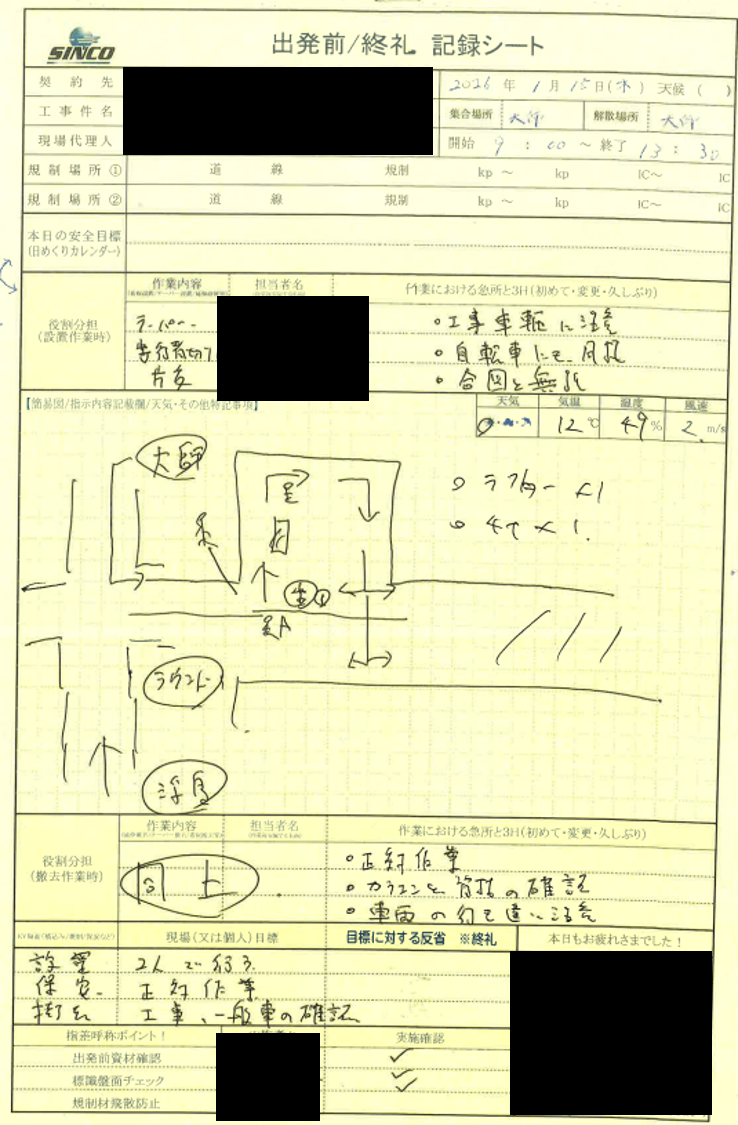 SINCO
出発前/終礼 記録シート
契約先
2026年 1月 15日(木) 天候( )
工事件名
集合場所 大師 解散場所 大師
現場代理人
開始 9:00〜終了 13:30
規制場所① 道 線 規制 kp〜 kp IC〜 IC
規制場所② 道 線 規制 kp〜 kp IC〜 IC
本日の安全目標
(日めくりカレンダー)
作業内容 担当者名 作業における急所と3H(初めて・変更・久しぶり)
役割分担
(設置作業時)
テーパー
・工事車輌に注意
・自転車
・合図と無線
【簡易図/指示内容記載欄/天気・その他特記事項】
天気 気温 湿度 風速
12℃ 49% 2. m/s
大師
ラウンド
浮島
作業内容 担当者名 作業における急所と3H(初めて・変更・久しぶり)
役割分担
(撤去作業時)
同上.
・正対作業
・の確認
・車両の注意
現場(又は個人)目標 目標に対する反省 ※終礼 本日もお疲れさまでした!
設置 2人で行う
保安 正対作業
工事、一般車の確認
指差呼称ポイント! 実施確認
出発前資材確認 ✓
標識盤面チェック ✓
規制材飛散防止